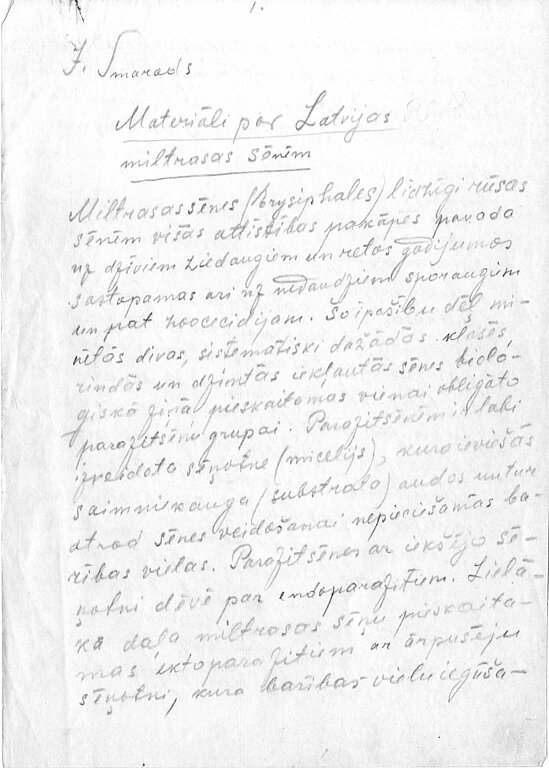 1.
J. Smarods
Materiāli par Latvijas
miltrasas sēnēm
Miltrasas sēnes (Erysiphales) līdzīgi rūsas
sēnēm visas attīstības pakāpes pavada
uz dzīviem ziedaugiem un retos gadījumos
sastopamas arī uz nedaudziem sporaugiem
un pat zoocecidijam. Šo īpašību dēļ mi-
nētās divas, sistemātiski dažādās klasēs,
rindās un dzimtās iekļautās sēnes bioló-
giskā ziņā pieskaitamas vienai obligāto
parazitsēņu grupai. Parazitsēnēm ir labi
izveidota sēņotne (micelijs), kura ieviešas
saimniekauga (substrata) audos un tur
atrod sēnes veidošanai nepieciešamās ba-
rības vielas. Parazitsēnes ar iekšējo sē-
ņotni dēvē par endoparazitiem. Lielā-
kā daļa miltrasas sēņu pieskaita-
mas ektoparazitiem ar ārpusēju
sēņotni, kura barības vielu iegūša-